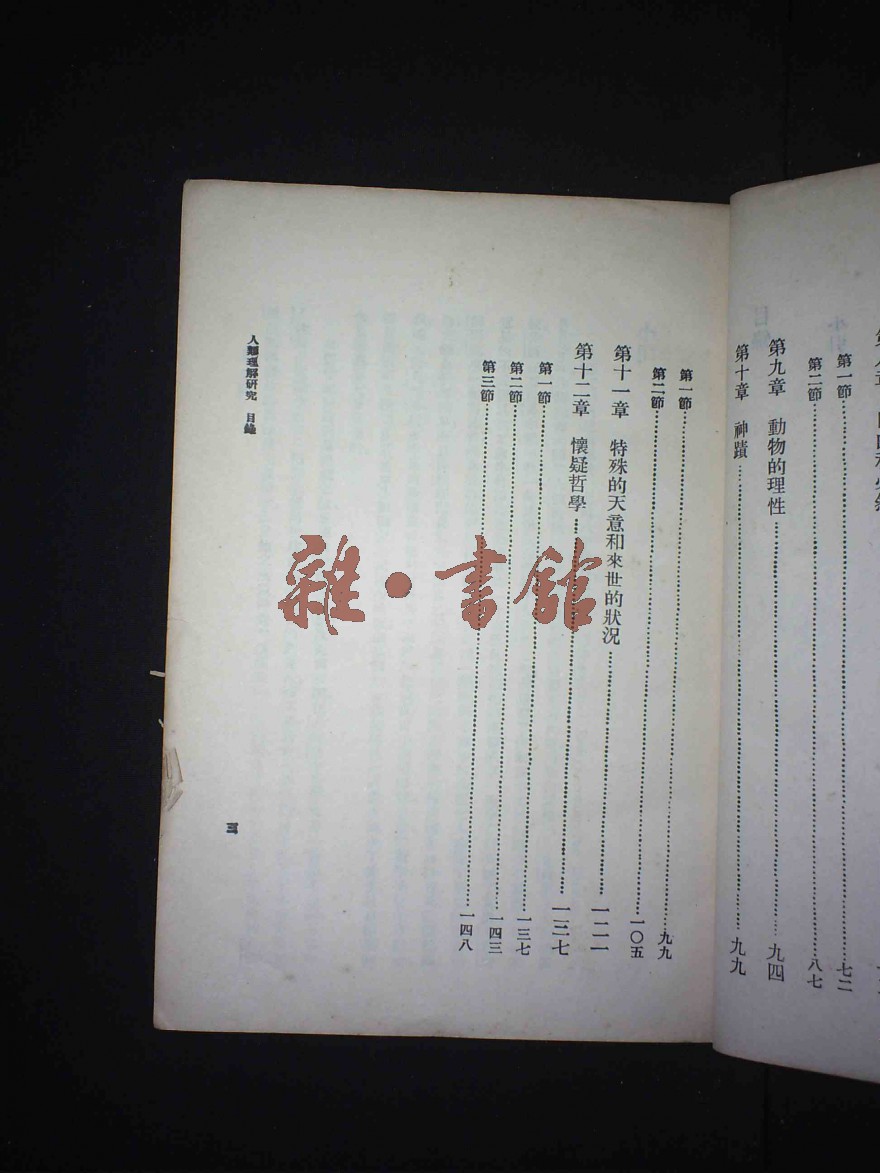 第一節……七二
第二節……八七
第九章　動物的理性……九四
第十章　神蹟……九九
第一節……九九
第二節……一〇五
第十一章　特殊的天意和來世的狀況……一二一
第十二章　懷疑哲學……一三七
第一節……一三七
第二節……一四三
第三節……一四八
人類理解研究　目錄
三
雜·書館